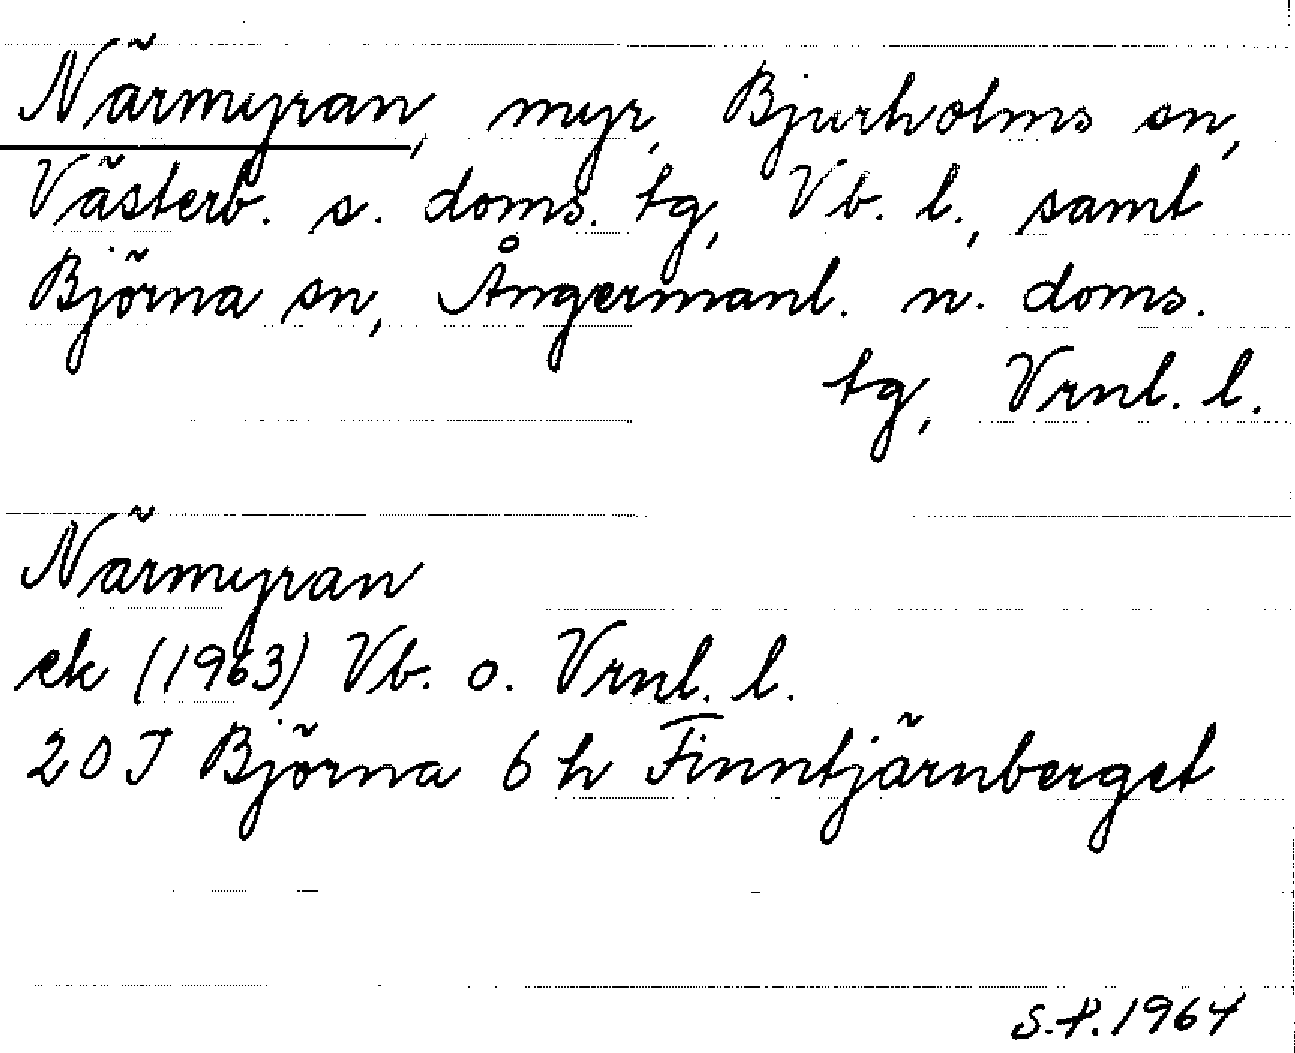 Närmyran, myr, Bjurholms sn,
Västerb. s. doms. tg, Vb. l., samt
Björna sn, Ångermanl. n. doms.
tg, Vrnl. l.
Närmyran
ek (1963) Vb. o. Vrnl. l.
20 J Björna 6 h Finntjärnberget
S.P. 1964